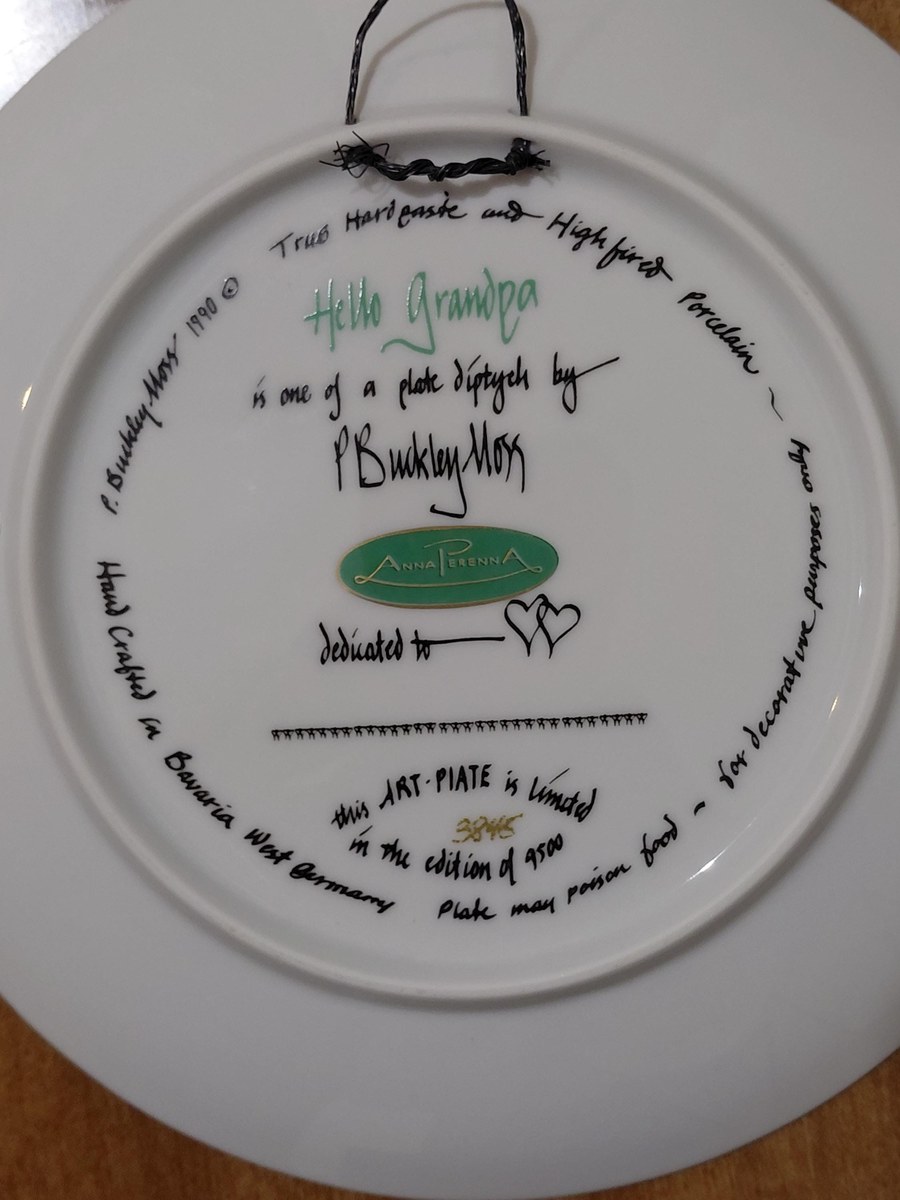 True Hardpaste and Highfired Porcelain ~
Hello Grandpa
is one of a plate diptych by
P Buckley Moss
ANNA PERENNA
dedicated to
this ART-PLATE is limited
3845
in the edition of 9500
Plate may poison food ~ for decorative purposes only
Hand Crafted in Bavaria West Germany
P. Buckley Moss 1990 ©